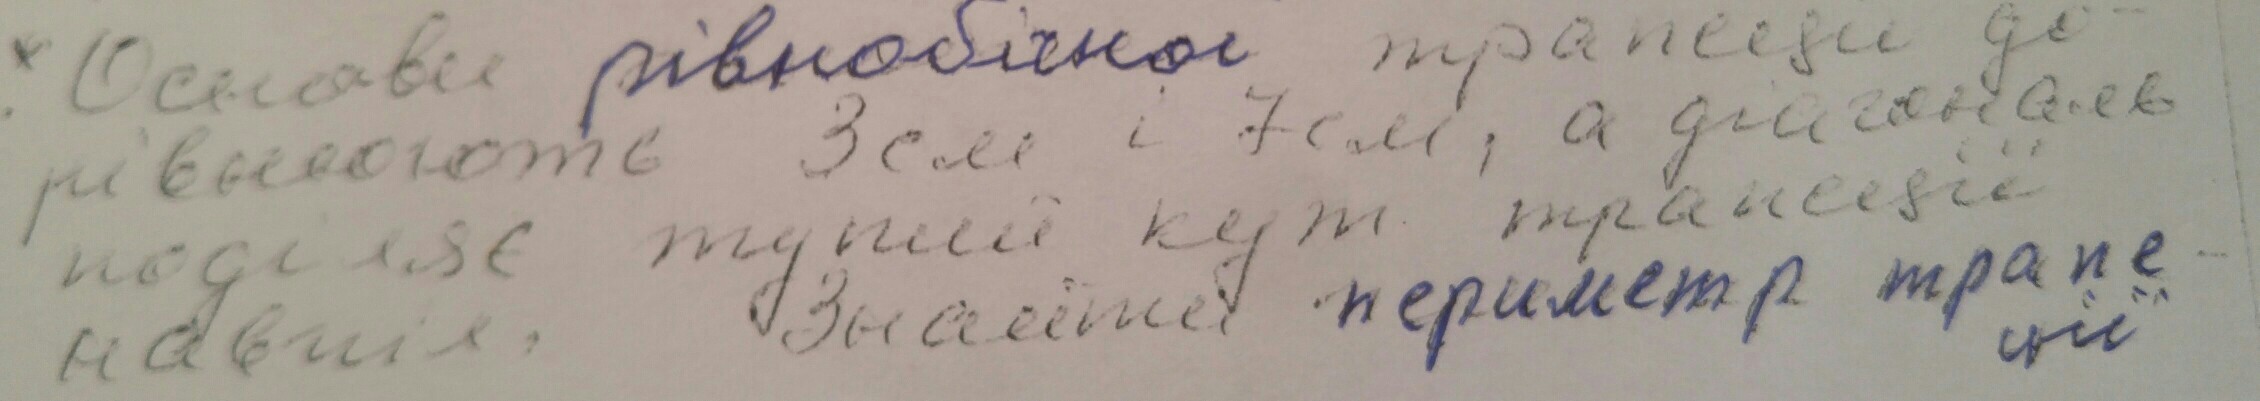 * Основи рівнобічної трапеції до-
рівнюють 3 см і 7 см, а діагональ
поділяє тупий кут трапеції
навпіл. Знайти периметр трапе-
ції